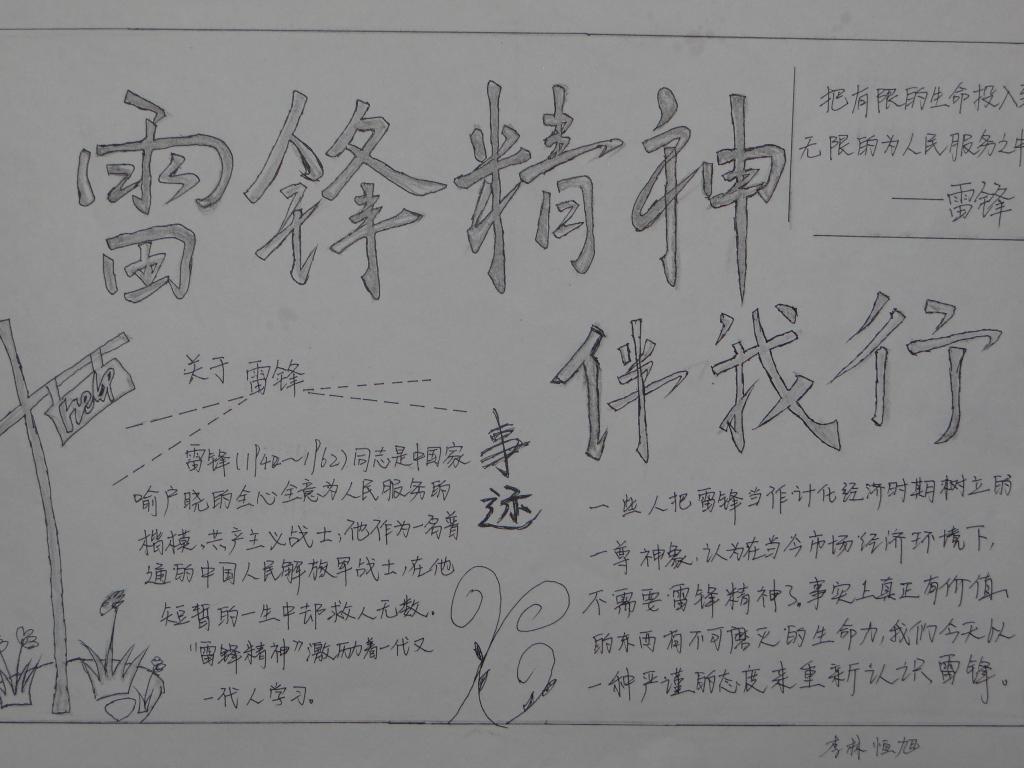 雷锋精神
伴我行
把有限的生命投入到
无限的为人民服务之中
——雷锋
Help
关于雷锋
雷锋(1940~1962)同志是中国家
喻户晓的全心全意为人民服务的
楷模、共产主义战士;他作为一名普
通的中国人民解放军战士,在他
短暂的一生中却救人无数.
"雷锋精神"激励着一代又
一代人学习.
事迹
一些人把雷锋当作计化经济时期树立的
一尊神象,认为在当今市场经济环境下,
不需要雷锋精神了。事实上真正有价值
的东西有不可磨灭的生命力,我们今天以
一种严谨的态度来重新认识雷锋。
李林恒旭